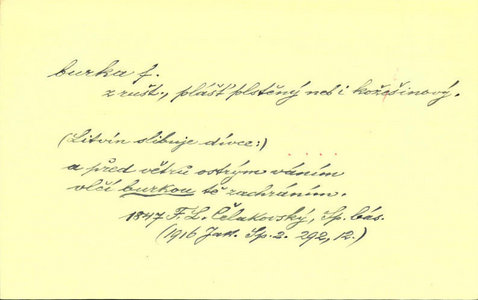 burka f.
z rušt., plášť plstěný neb i kožešinový.
(Litvín slibuje dívce:)
a před větrů ostrým váním
vlčí burkou tě zachráním.
1847 F. L. Čelakovský, Sp. bás.
(1916 Jak. Sp. 2. 292, 12.)